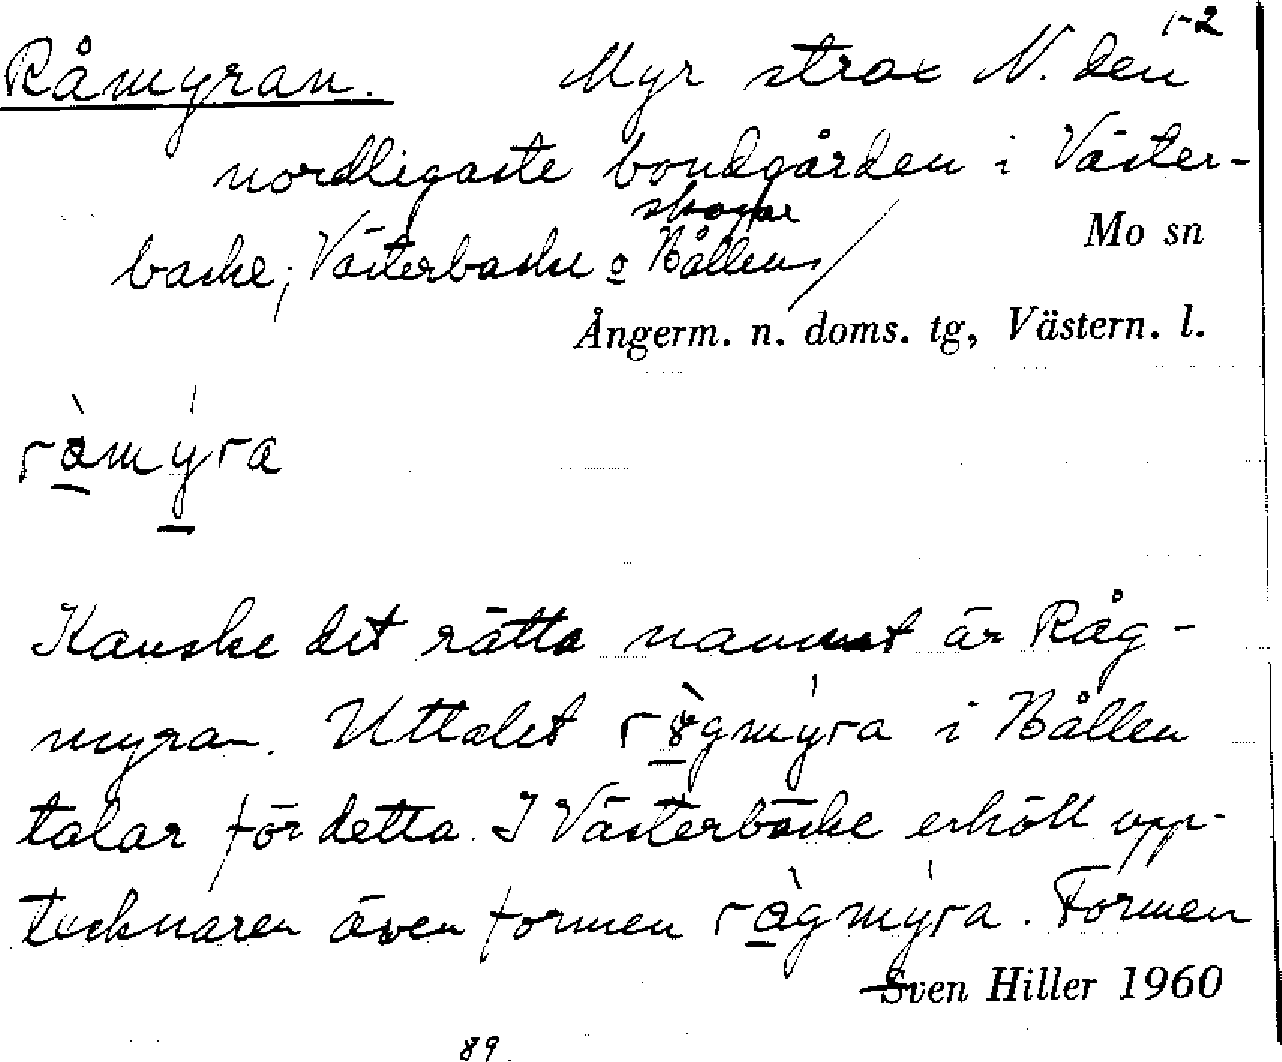 1-2
Råmyran. Myr strax N. den
nordligaste bondgården i Väster-
backe; Västerbacke o Bållens skogar
Mo sn
Ångerm. n. doms. tg, Västern. l.
ràmýra
Kanske det rätta namnet är Råg-
myran. Uttalet i Bållen
talar för detta. I Västerbacke erhöll upp-
tecknaren även formen ràgmýra. Formen
Sven Hiller 1960
89